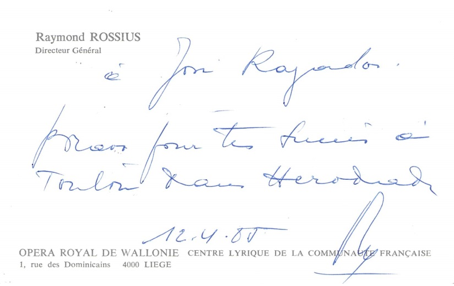 Raymond ROSSIUS
Directeur Général
à José Razador.
bravo pour tes succès à
Toulon dans Herodiade
12.4.85
OPERA ROYAL DE WALLONIE CENTRE LYRIQUE DE LA COMMUNAUTÉ FRANÇAISE
1, rue des Dominicains 4000 LIEGE